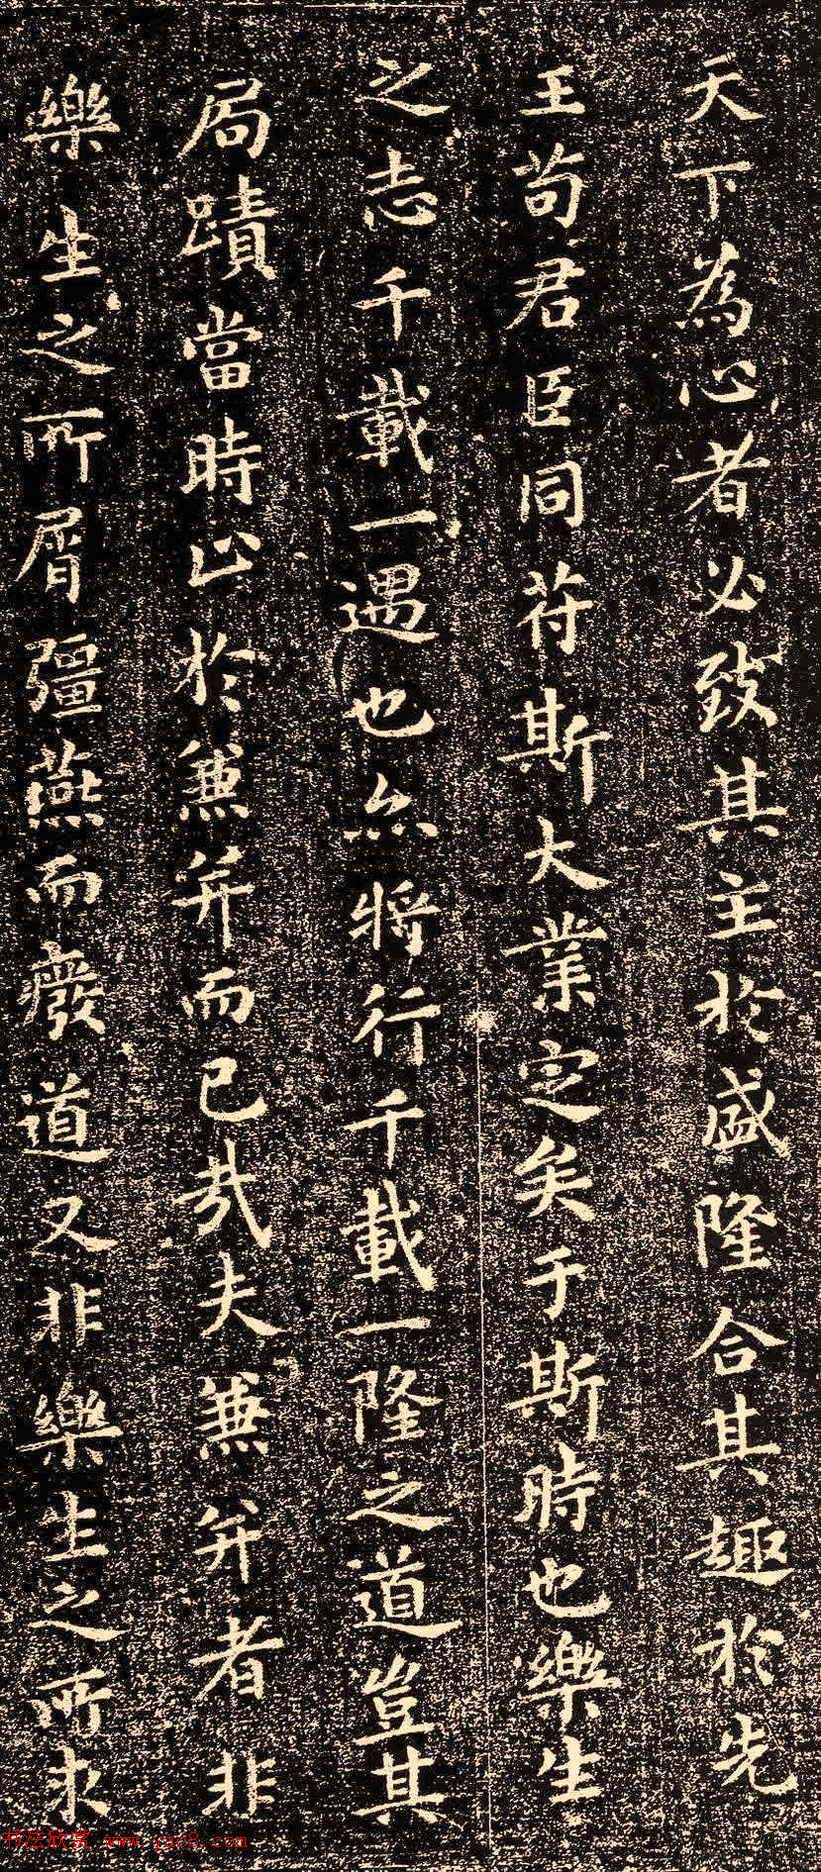 天下為心者必致其主於盛隆合其趣於先
王苟君臣同符斯大業定矣于斯時也樂生
之志千載一遇也亦將行千載一隆之道豈其
局蹟當時止於兼并而已哉夫兼并者非
樂生之所屑彊燕而廢道又非樂生之所求
书法欣赏 www.yac8.com